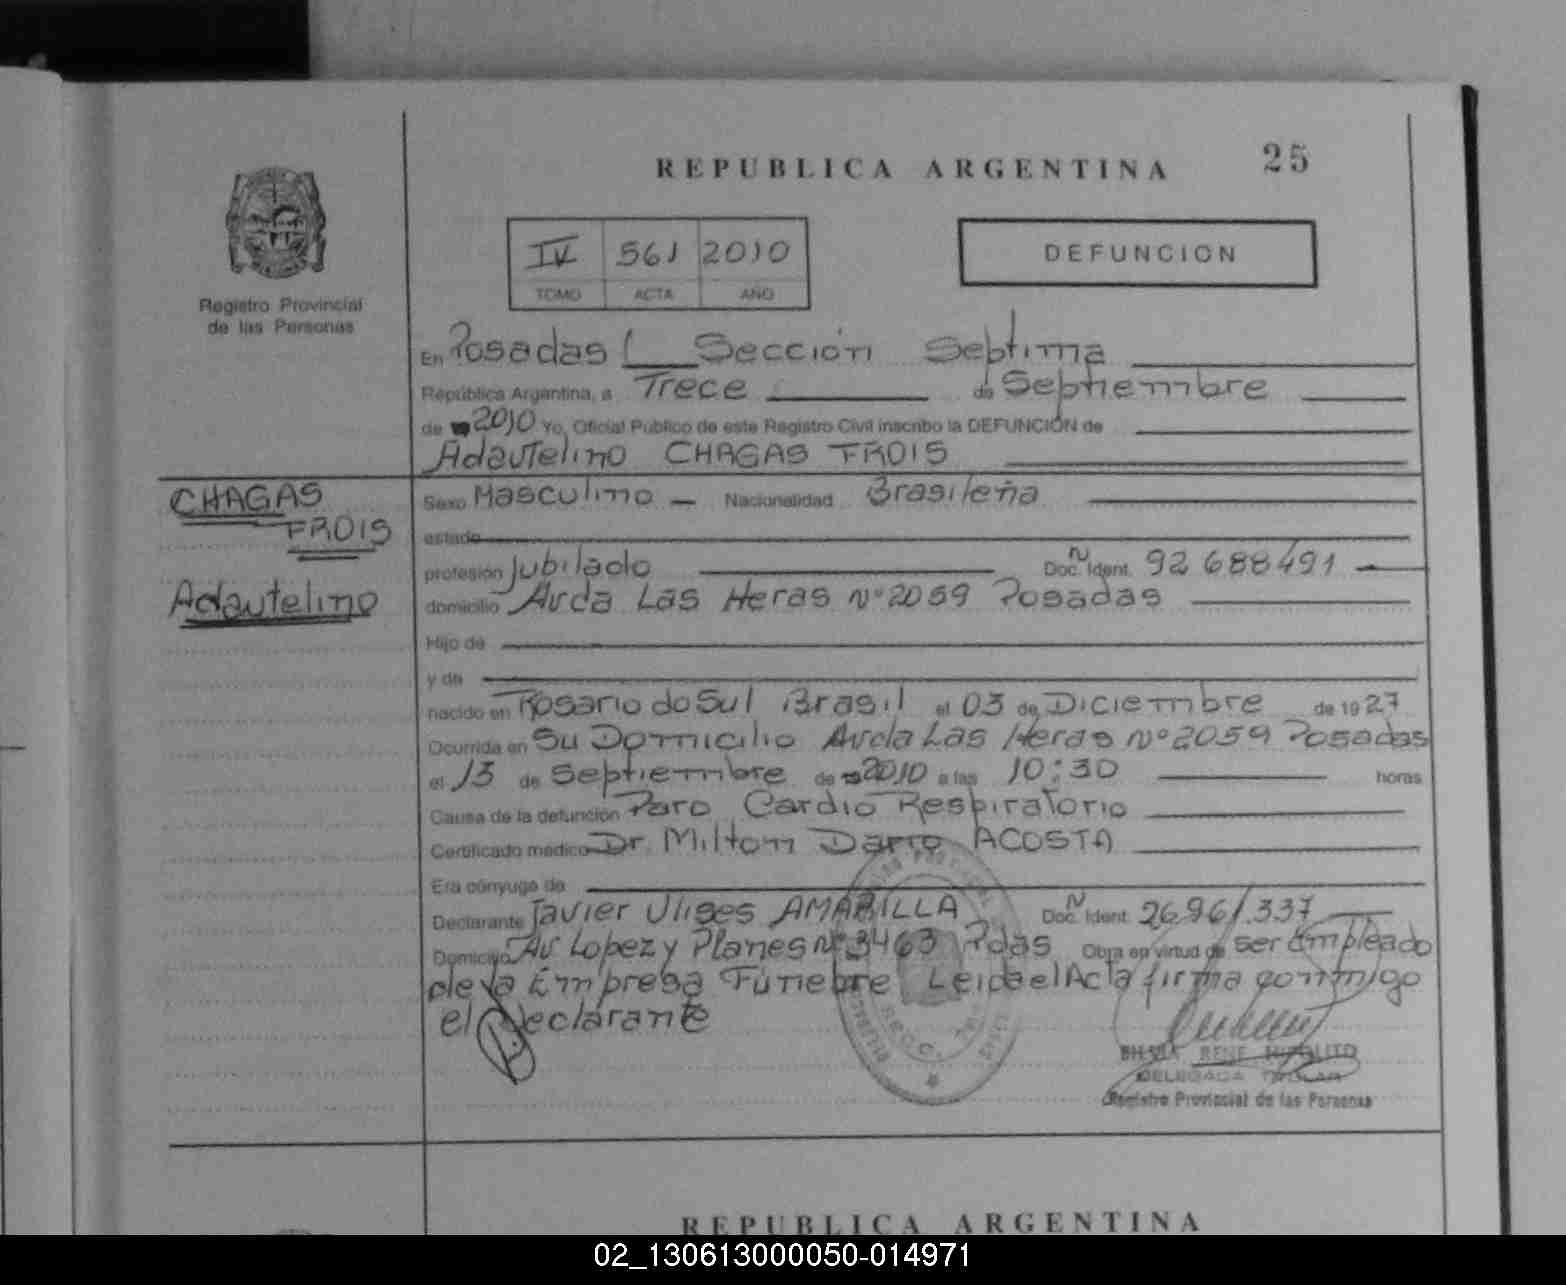 REPUBLICA ARGENTINA
25
IV 561 2010
TOMO ACTA AÑO
DEFUNCION
Registro Provincial
de las Personas
En Posadas Sección Septima
República Argentina, a Trece de Septiembre
de 2010 Yo, Oficial Público de este Registro Civil inscribo la DEFUNCIÓN de
Adautelino CHAGAS FROIS
CHAGAS
FROIS
Adautelino
Sexo Masculino Nacionalidad Brasileña
estado
profesión Jubilado Doc. N Ident. 92 688491
domicilio Avda Las Heras Nº 2059 Posadas
Hijo de
y de
nacido en Rosario do Sul Brasil el 03 de Diciembre de 1927
Ocurrida en Su Domicilio Avda Las Heras Nº 2059 Posadas
el 13 de Septiembre de 2010 a las 10:30 horas
Causa de la defunción Paro Cardio Respiratorio
Certificado médico Dr. Milton Dario ACOSTA
Era cónyuge de
Declarante Javier Ulises AMARILLA Doc. N Ident. 26961.337
Domicilio Av Lopez y Planes Nº 3463 Pdas Obra en virtud de ser Empleado
de la Empresa Fúnebre Leida el Acta firma conmigo
el Declarante
RENE HIPOLITO
DELEGADA TITULAR
Registro Provincial de las Personas
REPUBLICA ARGENTINA
02_130613000050-014971